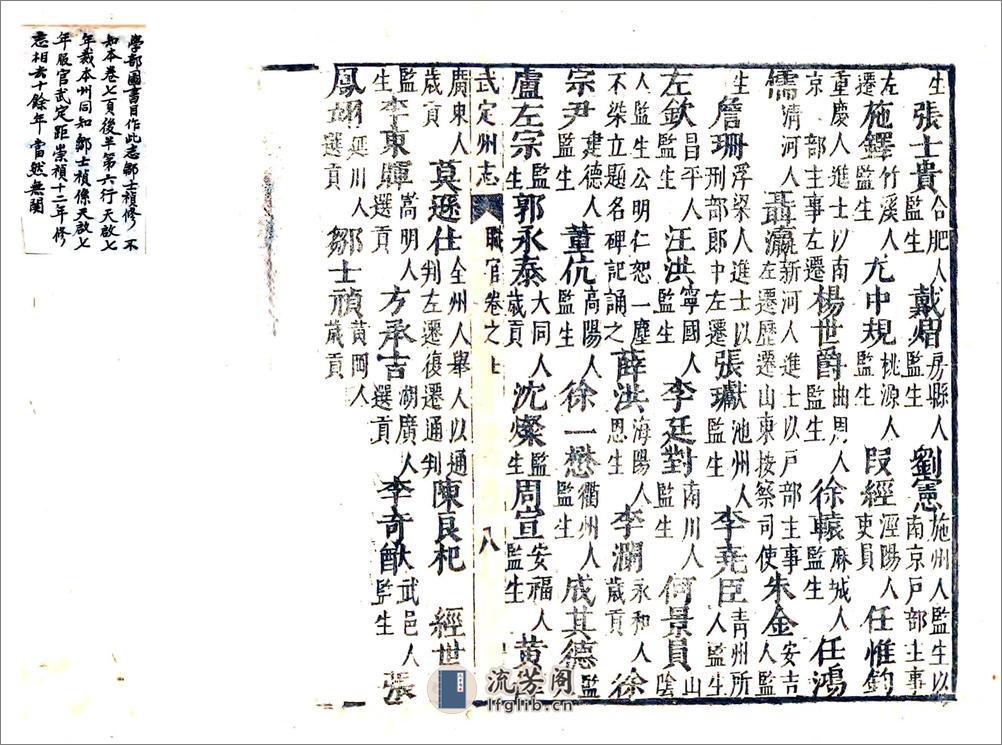 生 張士貴 合肥人監生 戴熠 房縣人監生 劉憲 施州人監生以南京戶部主事
左遷 施鐸 竹溪人監生 尤中規 桃源人監生 段經 涇陽人吏員 任惟鈞
重慶人進士以南京部主事左遷 楊世爵 曲周人監生 徐轅 麻城人監生 任鴻
儒 清河人 聶瀛 新河人進士以戶部主事左遷歷遷山東按察司使 朱金 安吉人監
生 詹珊 浮梁人進士以刑部郎中左遷 張瓛 獻池州人監生 李堯臣 青州所人監生
左欽 昌平人監生 汪洪 寧國人監生 李廷對 南川人監生 何景員 山陰
人監生公明仁恕一塵不染立題名碑記誦之 薛洪 海陽人恩生 李瀾 永和人歲貢 徐
宗尹 建德人監生 董伉 高陽人監生 徐一懋 衢州人監生 成其德 監生
盧左宗 監生 郭永泰 大同人歲貢 沈燦 監生 周宣 安福人監生 黃
武定州志 職官卷之上 八
廣東人歲貢 莫遜仕 全州人舉人以通判左遷復遷通判 陳良杞 經世
監生 李東暉 嵩明人選貢 方承吉 湖廣人選貢 李奇猷 大武邑人監生 張
鳳翊 延川人選貢 鄒士禎 黃岡人歲貢
學部圖書目作此志鄒士禎修 不
知本卷七頁後半第六行天啟七
年裁本州同知鄒士禎係天啟七
年服官武定距崇禎十二年修
志相去十餘年當然無關
流芳阁
lfglib.cn